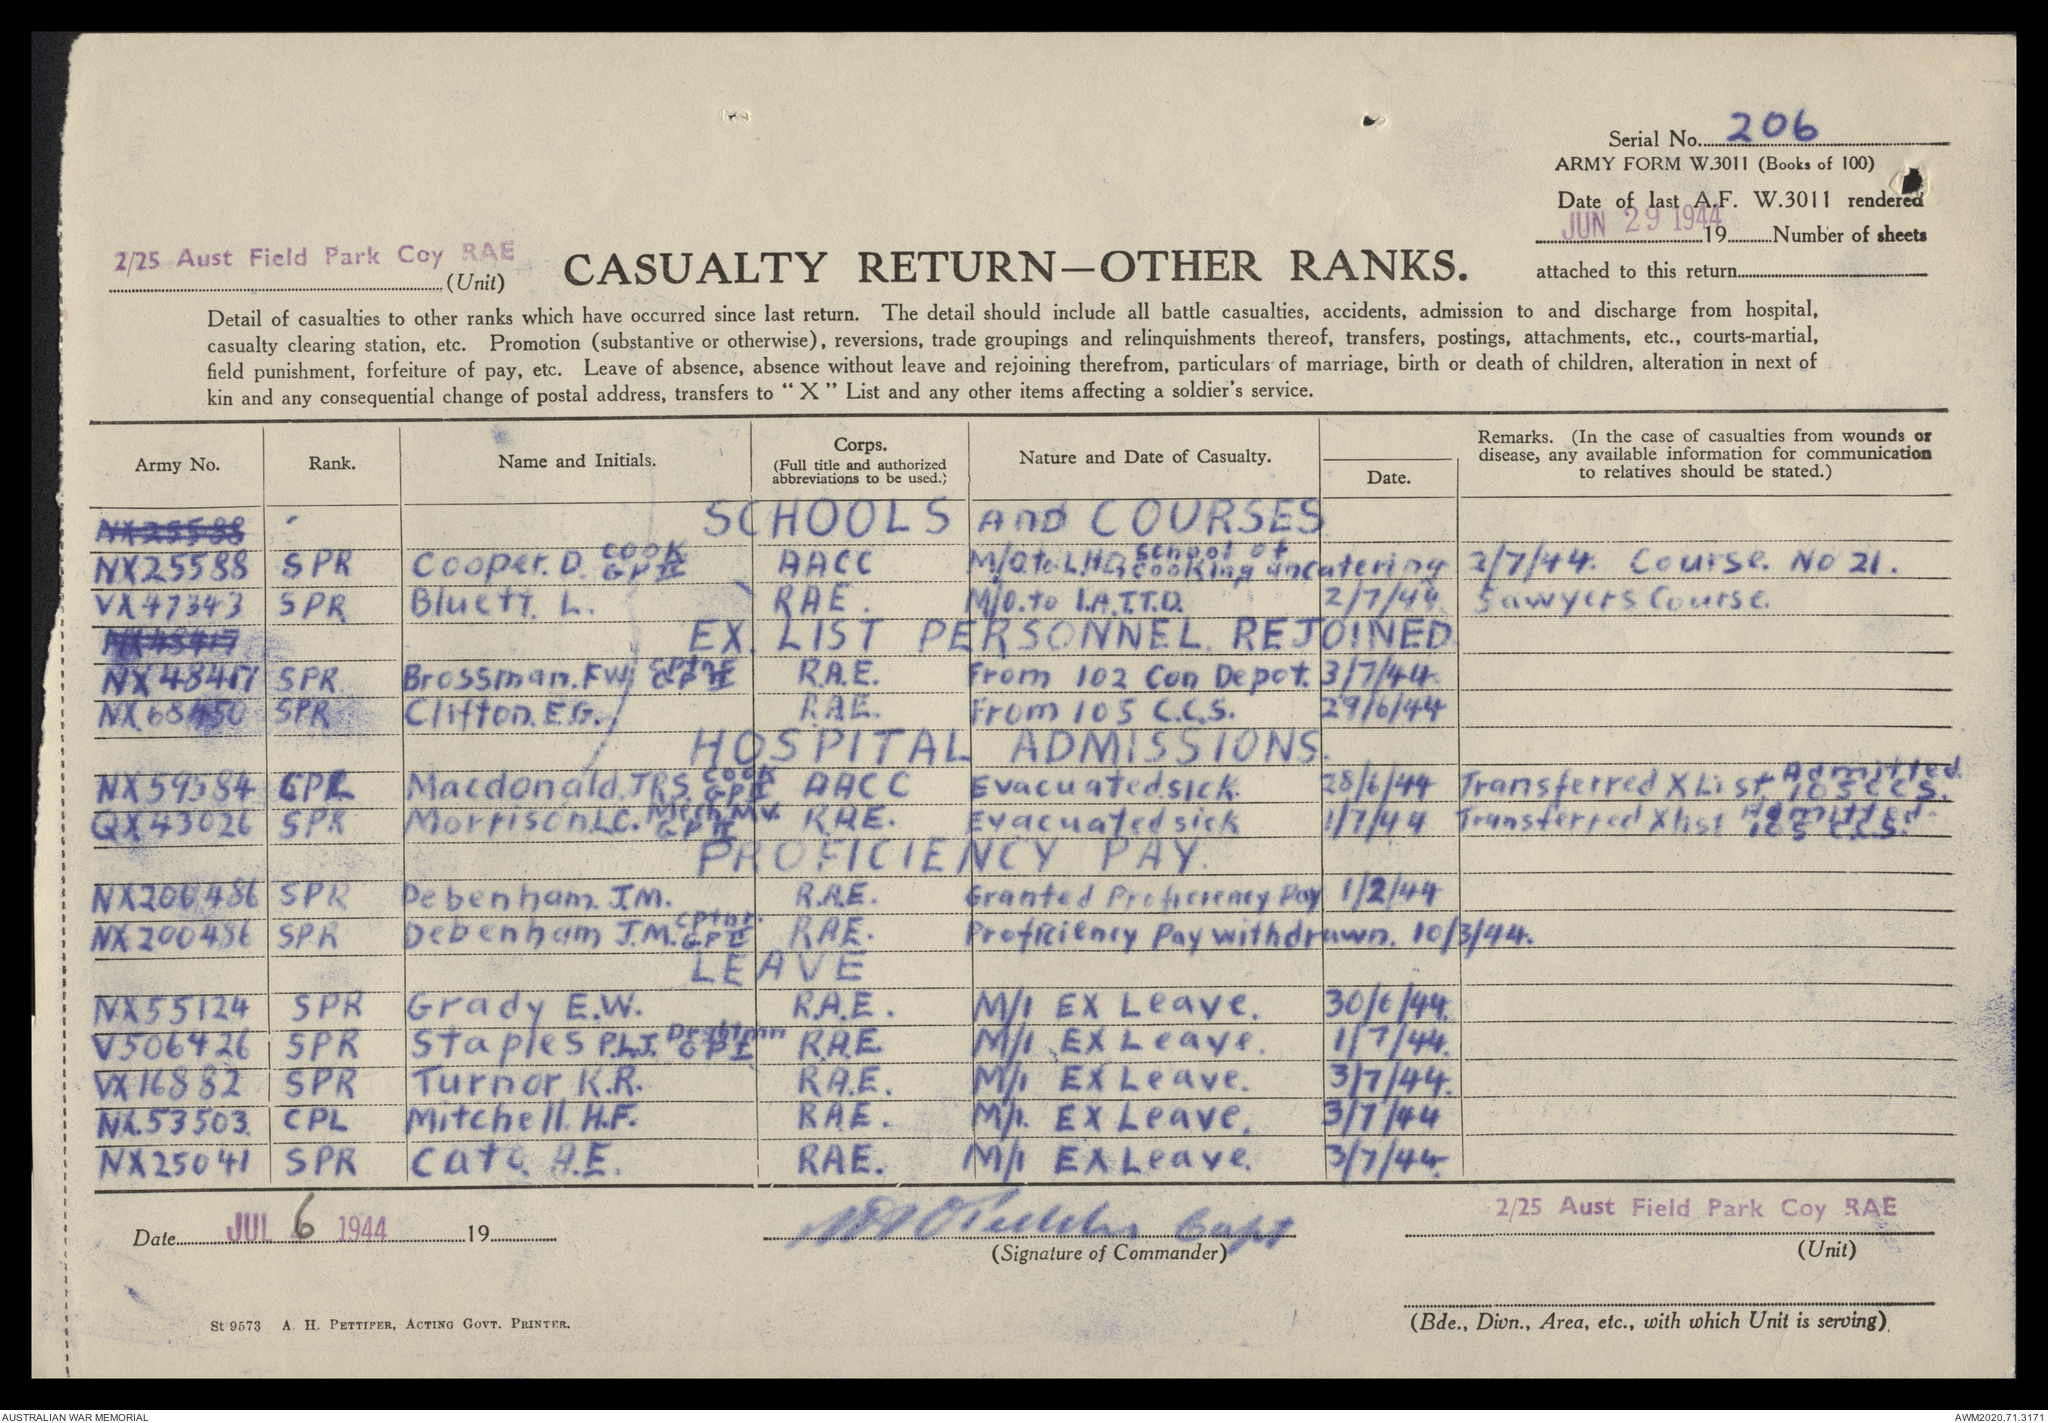 Serial No. 206
ARMY FORM W.3011 (Books of 100)
Date of last A.F. W.3011 rendered
JUN 29 1944 19 Number of sheets
attached to this return
2/25 Aust Field Park Coy RAE
(Unit)
CASUALTY RETURN—OTHER RANKS.
Detail of casualties to other ranks which have occurred since last return. The detail should include all battle casualties, accidents, admission to and discharge from hospital,
casualty clearing station, etc. Promotion (substantive or otherwise), reversions, trade groupings and relinquishments thereof, transfers, postings, attachments, etc., courts-martial,
field punishment, forfeiture of pay, etc. Leave of absence, absence without leave and rejoining therefrom, particulars of marriage, birth or death of children, alteration in next of
kin and any consequential change of postal address, transfers to “ X ” List and any other items affecting a soldier's service.
Army No. Rank. Name and Initials. Corps. (Full title and authorized abbreviations to be used.) Nature and Date of Casualty. Date. Remarks. (In the case of casualties from wounds or disease, any available information for communication to relatives should be stated.)
NX25588 SCHOOLS and COURSES
NX25588 SPR Cooper. D. COOK GP II AACC M/O. to L.H.Q. School of cooking an catering 2/7/44. Course. No 21.
VX47343 SPR Bluett. L. RAE. M/O. to L.A.T.T.D. 2/7/44 Sawyers Course.
NX48417 EX. LIST PERSONNEL REJOINED
NX48417 SPR Brossman. F.W. GP II R.A.E. From 102 Con Depot. 3/7/44.
SPR Clifton. E.G. R.A.E. From 105 C.C.S. 29/6/44
HOSPITAL ADMISSIONS.
NX59584 CPL Macdonald. J.R.S. COOK GP II AACC Evacuated sick. 28/6/44 Transferred X List Admitted 105 CCS.
QX43026 SPR Morrison L.C. Mech. M.V. GP II R.A.E. Evacuated sick 1/7/44 Transferred X list Admitted 105 C.C.S.
PROFICIENCY PAY.
NX200486 SPR Debenham. J.M. R.A.E. Granted Proficiency Pay 1/2/44
NX200486 SPR Debenham J.M. Cptnr. GP II RAE. Proficiency Pay withdrawn. 10/3/44.
LEAVE
NX55124 SPR Grady E.W. R.A.E. M/I EX Leave. 30/6/44.
V506426 SPR Staples P.L.J. Drghtmn GP I R.A.E M/I EX Leave. 1/7/44.
VX16882 SPR Turnor K.R. R.A.E. M/I EX Leave. 3/7/44.
NX.53503 CPL Mitchell. H.F. RAE. M/I. EX Leave. 3/7/44
NX25041 SPR Cato. H.E. RAE. M/I EX Leave. 3/7/44.
Date JUL 6 1944 19
Capt
(Signature of Commander)
2/25 Aust Field Park Coy RAE
(Unit)
(Bde., Divn., Area, etc., with which Unit is serving)
St 9573 A. H. PETTIFER, ACTING GOVT. PRINTER.
AUSTRALIAN WAR MEMORIAL
AWM2020.71.3171